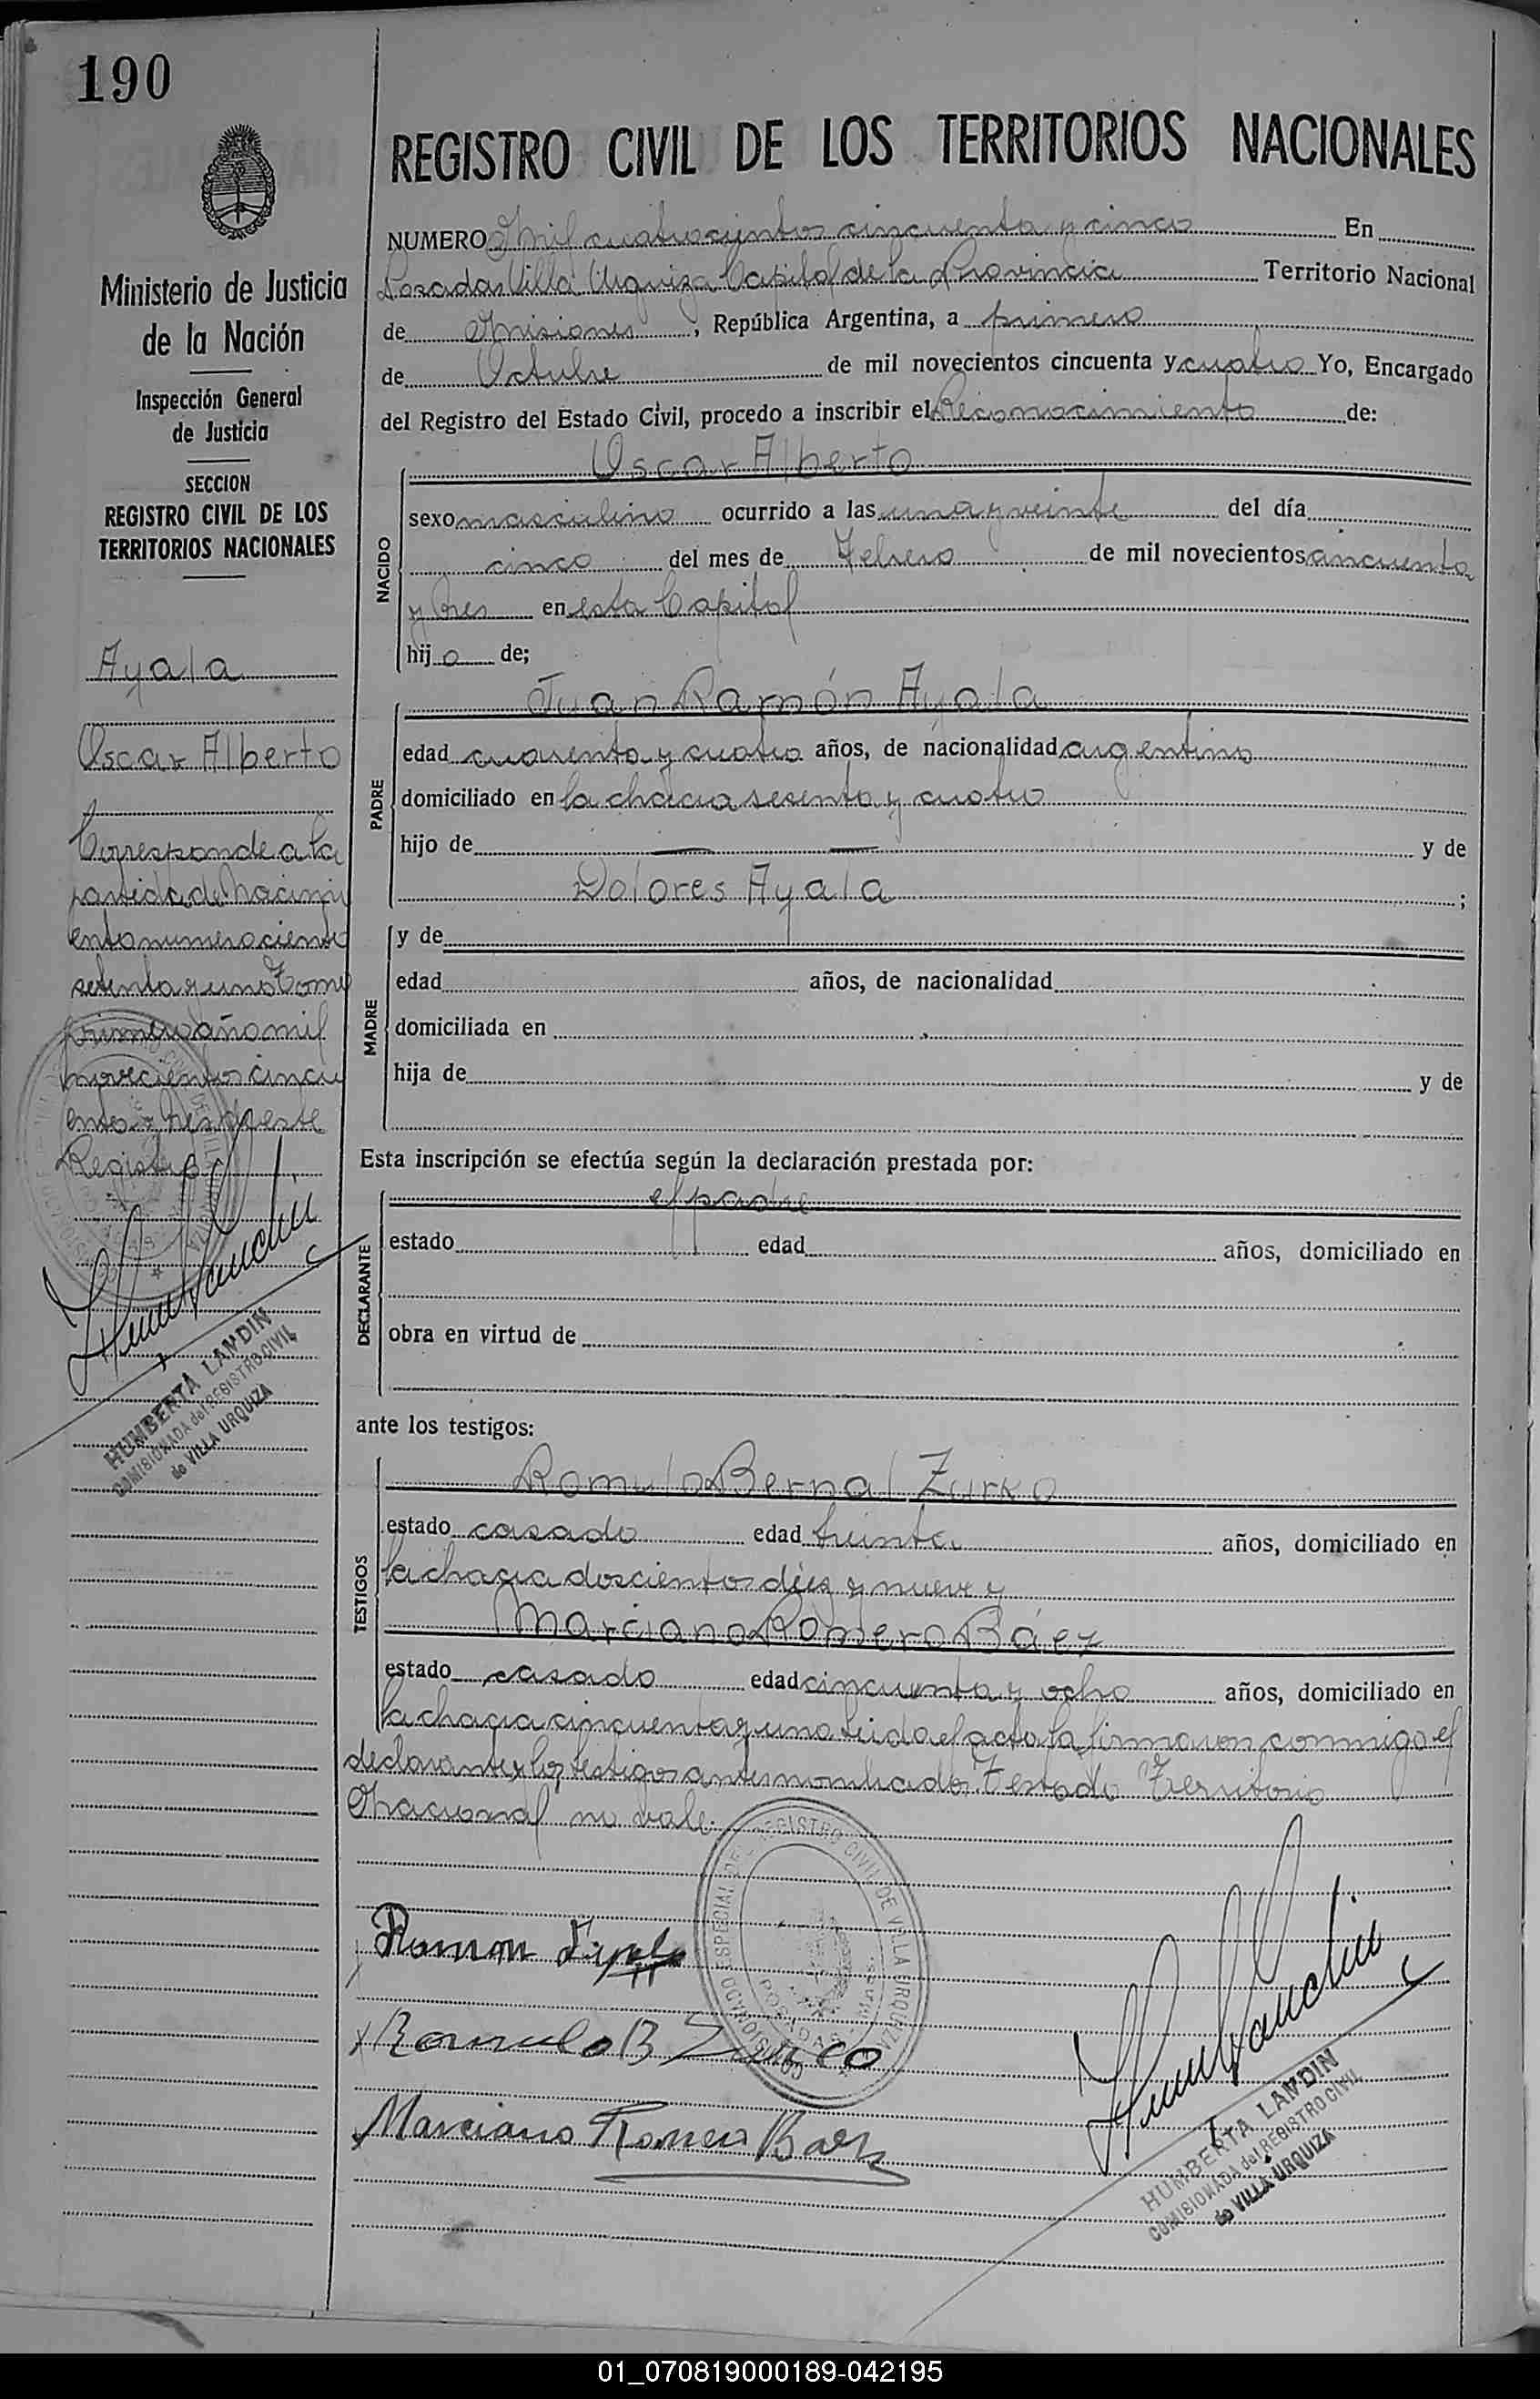 190
REGISTRO CIVIL DE LOS TERRITORIOS NACIONALES
NUMERO Mil cuatrocientos cincuenta y cinco En
Posadas Villa Urquiza Capital de la Provincia Territorio Nacional
de Misiones, República Argentina, a primero
de Octubre de mil novecientos cincuenta y cuatro Yo, Encargado
del Registro del Estado Civil, procedo a inscribir el Reconocimiento de:
Ministerio de Justicia
de la Nación
Inspección General
de Justicia
SECCION
REGISTRO CIVIL DE LOS
TERRITORIOS NACIONALES
Ayala
Oscar Alberto
Corresponde a la
partida de Nacimi
ento numero ciento
setenta y uno Tomo
primero año mil
novecientos cincu
enta y tres de este
Registro
HUMBERTA LANDIN
COMISIONADA del REGISTRO CIVIL
de VILLA URQUIZA
NACIDO
Oscar Alberto
sexo masculino ocurrido a las una y veinte del día
cinco del mes de Febrero de mil novecientos cincuenta
y tres en esta Capital
hijo de;
PADRE
Juan Ramón Ayala
edad cuarenta y cuatro años, de nacionalidad argentino
domiciliado en la chacra sesenta y cuatro
hijo de — — y de
Dolores Ayala ;
MADRE
y de
edad años, de nacionalidad
domiciliada en
hija de y de
Esta inscripción se efectúa según la declaración prestada por:
DECLARANTE
el padre
estado edad años, domiciliado en
obra en virtud de
ante los testigos:
TESTIGOS
Romulo Bernal Zurko
estado casado edad treinta años, domiciliado en
la chacra doscientos diez y nueve y
Marciano Romero Báez
estado casado edad cincuenta y ocho años, domiciliado en
la chacra cincuenta y uno. Leída el acta la firmaron conmigo el
declarante y los testigos antes nombrados. Testado Territorio
Nacional no vale.
COMISIONADO ESPECIAL DEL REGISTRO CIVIL DE VILLA URQUIZA
POSADAS - Mnes.
Ramon Ayala
Romulo B Zurco
Marciano Romero Baez
HUMBERTA LANDIN
COMISIONADA del REGISTRO CIVIL
de VILLA URQUIZA
01_070819000189-042195